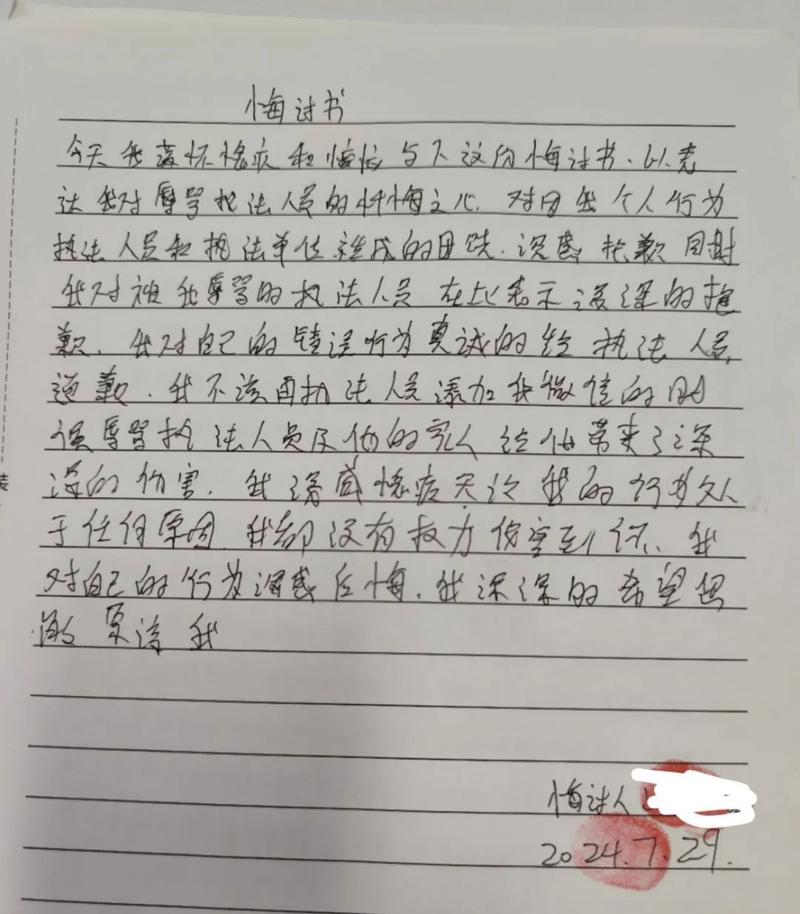 悔过书
今天我怀愧疚和写下这份悔过书。以表
达我对辱骂执法人员的忏悔之心。对因我个人行为
执法人员和执法单位造成的困扰。深感抱歉同时
我对被我辱骂的执法人员在此表示深深的抱
歉。我对自己的错误行为真诚的给执法人员
道歉。我不该因执法人员添加我微信的时
辱骂执法人员及他的家人给他带来了深
深的伤害。我深感愧疚无论我的行为
于任何原因我都没有权力伤害到你。我
对自己的行为深感后悔。我深深的希望您
原谅我
悔过人
2024.7.29.